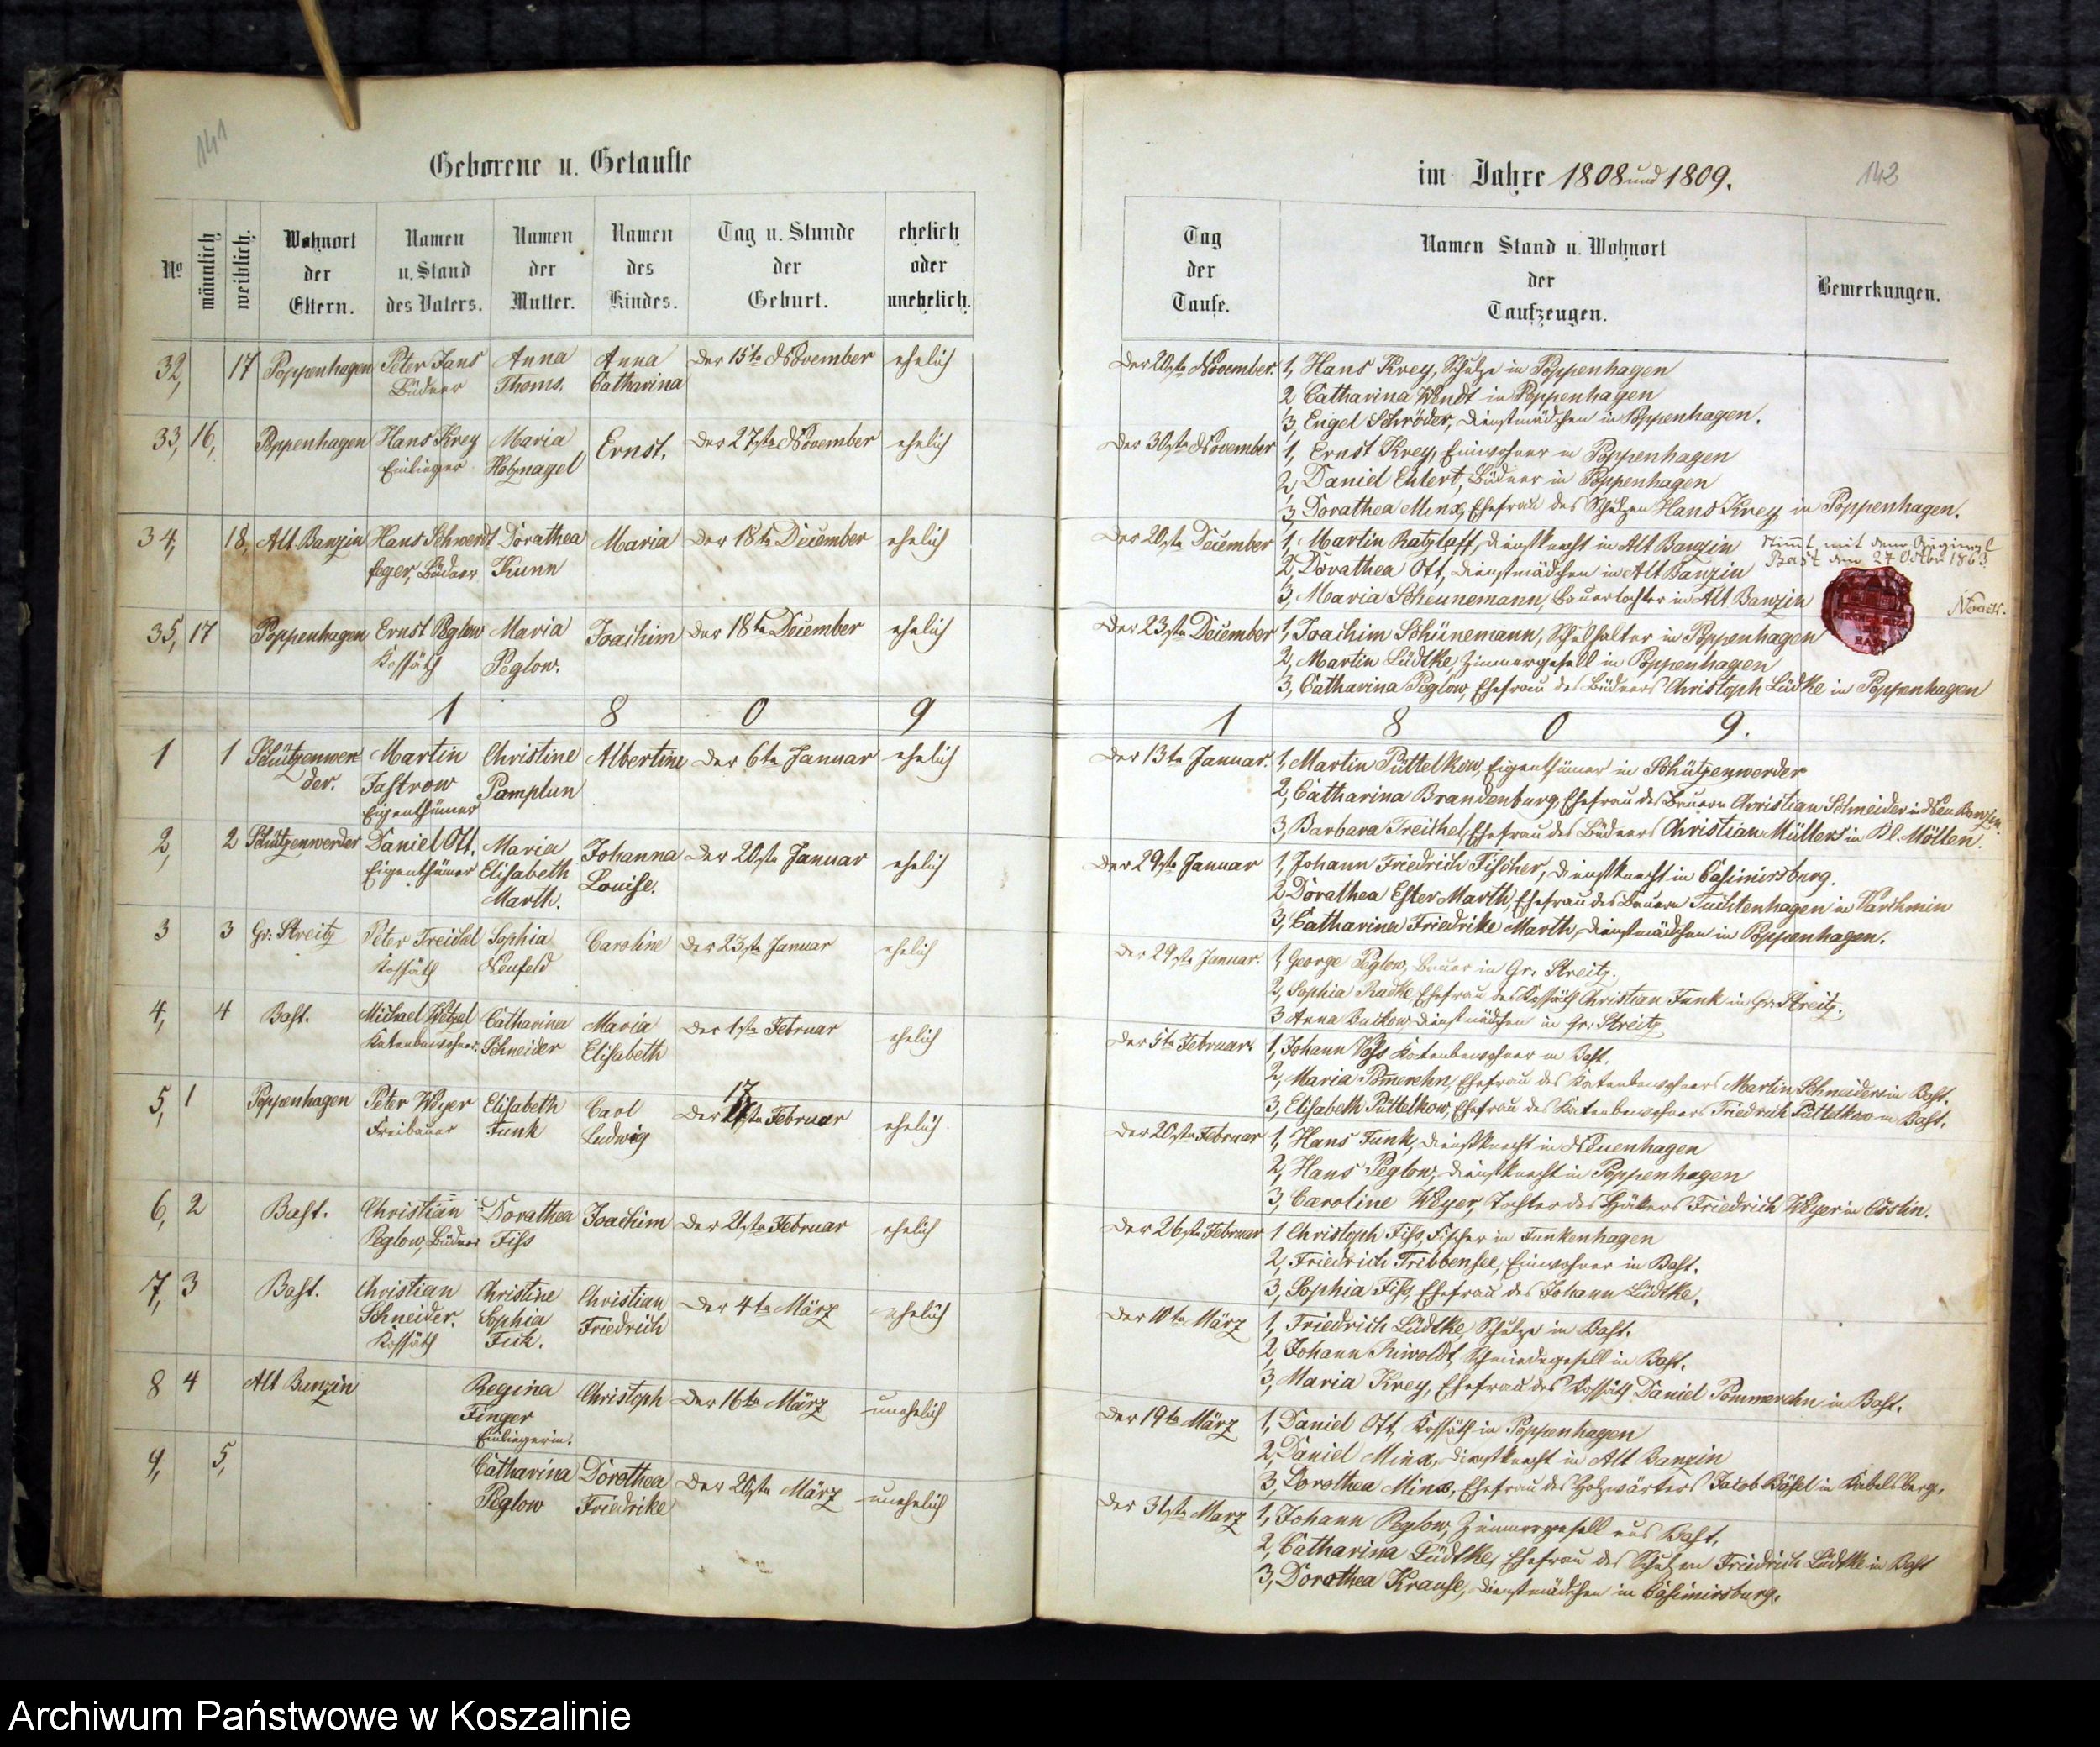 141
Geborene u. Getaufte
No
männlich
weiblich.
Wohnort
der
Eltern.
Namen
u. Stand
des Vaters.
Namen
der
Mutter.
Namen
des
Kindes.
Tag u. Stunde
der
Geburt.
ehelich
oder
unehelich.
32, 17 Poppenhagen Peter Jans Anna Anna Der 15te November ehelich
Büdner Thoms. Catharina
33, 16, Poppenhagen Hans Krey Maria Ernst. Der 27ste November ehelich
Einlieger Holznagel
34, 18, Alt Banzin Hans Schwerdt Dorathea Maria Der 18te December ehelich
feger, Büdner Kunn
35, 17 Poppenhagen Ernst Peglow Maria Joachim Der 18te December ehelich
Kossäth Peglow.
1 8 0 9
1 1 Schützenwer- Martin Christine Albertine Der 6te Januar ehelich
der. Jastrow Pamplun
Eigenthümer
2, 2 Schützenwerder Daniel Ott. Maria Johanna Der 20ste Januar ehelich
Eigenthümer Elisabeth Louise.
Marth.
3 3 Gr. Streitz Peter Treichel Sophia Caroline Der 23ste Januar ehelich
Kossäth Neufeld
4, 4 Bast. Michael Wetzel Catharina Maria Der 1ste Februar ehelich
Katenbewohner. Schneider Elisabeth
5, 1 Poppenhagen Peter Weyer Elisabeth Carl Der 17 Februar ehelich.
Freibauer Funk Ludwig
6, 2 Bast. Christian Dorathea Joachim Der 21ste Februar ehelich
Peglow, Büdner Fiss
7, 3 Bast. Christian Christine Christian Der 4te März ehelich
Schneider. Sophia Friedrich
Kossäth Fick.
8 4 Alt Banzin Regina Christoph Der 16te März unehelich
Finger
Einliegerin.
9, 5, Catharina Dorothea Der 20ste März unehelich
Peglow Friedrike
im Jahre 1808 und 1809.
142
Tag
der
Taufe.
Namen Stand u. Wohnort
der
Taufzeugen.
Bemerkungen.
Der 20ste November. 1, Hans Krey, Schulze in Poppenhagen
2 Catharina Wendt in Poppenhagen
3, Engel Schröder, Dienstmädchen in Poppenhagen.
Der 30ste November 1, Ernst Krey, Einwohner in Poppenhagen
2, Daniel Ehlert, Büdner in Poppenhagen
3, Dorathea Minx, Ehefrau des Schulzen Hans Krey in Poppenhagen.
Der 20ste December 1, Martin Ratzlaff, Dienstknecht in Alt Banzin
2, Dorathea Ott, Dienstmädchen in Alt Banzin
3, Maria Scheunemann, Bauertochter in Alt Banzin
Stimmt mit dem Original
Bast den 27 October 1863
Noack.
Der 23ste December 1, Joachim Schünemann, Schulhalter in Poppenhagen
2, Martin Lüdtke, Zimmergesell in Poppenhagen
3, Catharina Peglow, Ehefrau des Büdners Christoph Lüdke in Poppenhagen
1 8 0 9.
Der 13te Januar. 1, Martin Püttelkow, Eigenthümer in Schützenwerder
2, Catharina Brandenburg, Ehefrau des Bauern Christian Schneider in Neu Banzin.
3, Barbara Treichel, Ehefrau des Büdners Christian Müllers in Kl. Möllen.
Der 29ste Januar 1, Johann Friedrich Fischer, Dienstknecht in Casimirsburg.
2 Dorathea Ester Marth, Ehefrau des Bauern Tuchtenhagen in Varchmin
3, Catharina Friedrike Marth, Dienstmädchen in Poppenhagen.
Der 29ste Januar. 1, George Peglow, Bauer in Gr. Streitz.
2, Sophia Radke, Ehefrau des Kossäth Christian Funk in Gr: Streitz.
3 Anna Buckow Dienstmädchen in Gr: Streitz
Der 5te Februar. 1, Johann Voss Katenbewohner in Bast.
2, Maria Pommerehn, Ehefrau des Katenbewohners Martin Schneiders in Bast.
3, Elisabeth Püttelkow, Ehefrau des Katenbewohners Friedrich Püttelkow in Bast.
Der 20ste Februar 1, Hans Funk, Dienstknecht in Neuenhagen
2, Hans Peglow, Dienstknecht in Poppenhagen
3, Caroline Weyer, Tochter des Hökers Friedrich Weyer in Cöslin.
Der 26ste Februar 1 Christoph Fiss, Fischer in Funkenhagen
2, Friedrich Tribbensee, Einwohner in Bast.
3, Sophia Fiss, Ehefrau des Johann Lüdtke.
Der 10te März 1, Friedrich Lüdtke, Schulze in Bast.
2, Johann Riwoldt, Schmiedegesell in Bast.
3, Maria Krey, Ehefrau des Kossäth Daniel Pommerehn in Bast.
Der 19te März 1, Daniel Ott, Kossäth in Poppenhagen
2, Daniel Minx, Dienstknecht in Alt Banzin
3, Dorothea Minx, Ehefrau des Holzwärters Jacob Bösel in Kabelsberg.
Der 31ste März 1, Johann Peglow, Zimmergesell aus Bast.
2, Catharina Lüdtke, Ehefrau des Schulzen Friedrich Lüdtke in Bast
3, Dorothea Krause, Dienstmädchen in Casimirsburg.
Archiwum Państwowe w Koszalinie